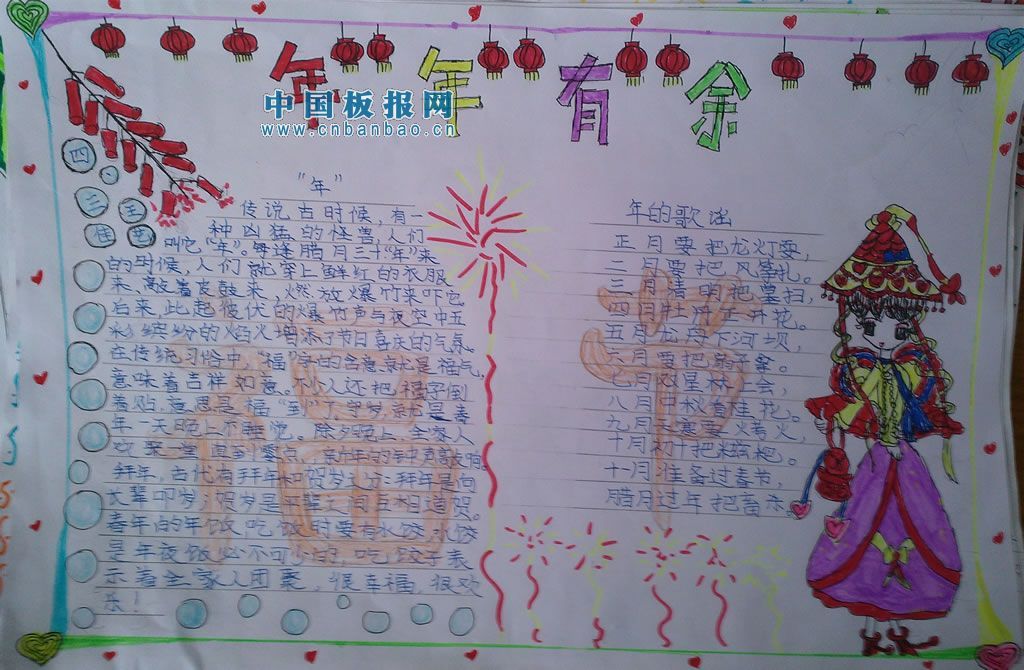 年年有余
中国板报网
www.cnbanbao.cn
四
三王
佳
“年”
传说古时候，有一
种凶猛的怪兽，人们
叫它“年”。每逢腊月三十“年”来
的时候，人们就穿上鲜红的衣服
来，敲着皮鼓来，燃放爆竹来吓它
后来，此起彼伏的爆竹声与夜空中五
彩缤纷的焰火增添了节日喜庆的气氛。
在传统习俗中，“福”字的含意就是福气。
意味着吉祥如意。不少人还把福字倒
着贴，意思是福“到”了。守岁，就是
年一天晚上不睡觉。除夕晚上，全家人
欢聚一堂，直到零点，
拜年，古代有拜年和贺岁之分：拜年是向
长辈叩岁，贺岁是平辈之间互相道贺。
春年的年饭，吃饭时要有水饺，水饺
是年夜饭必不可少的，吃饺子表
示着全家人团聚，很幸福，很欢
乐！
年的歌谣
正月要把龙灯耍，
二月要把风筝扎。
三月清明把墓扫，
四月牡丹子开花。
五月龙舟下河坝，
六月要把扇子拿。
七月双星桥上会，
八月中秋看桂花。
九月天寒要烤火，
十月初十把糍粑。
十一月准备过春节，
腊月过年把畜杀